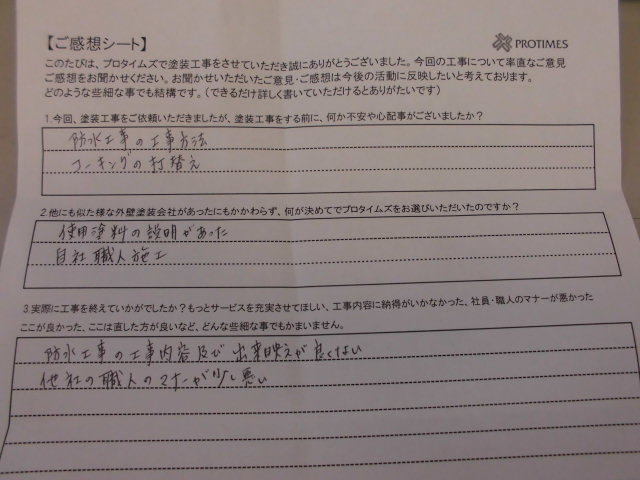 【ご感想シート】
PROTIMES
このたびは、プロタイムズで塗装工事をさせていただき誠にありがとうございました。今回の工事について率直なご意見
ご感想をお聞かせください。お聞かせいただいたご意見・ご感想は今後の活動に反映したいと考えております。
どのような些細な事でも結構です。（できるだけ詳しく書いていただけるとありがたいです）
1.今回、塗装工事をご依頼いただきましたが、塗装工事をする前に、何か不安や心配事がございましたか？
防水工事の工事方法
コーキングの打替え
2.他にも似た様な外壁塗装会社があったにもかかわらず、何が決めてでプロタイムズをお選びいただいたのですか？
使用塗料の説明があった
自社職人施工
3.実際に工事を終えていかがでしたか？もっとサービスを充実させてほしい、工事内容に納得がいかなかった、社員・職人のマナーが悪かった
ここが良かった、ここは直した方が良いなど、どんな些細な事でもかまいません。
防水工事の工事内容及び出来映えが良くない
他社の職人のマナーが少し悪い